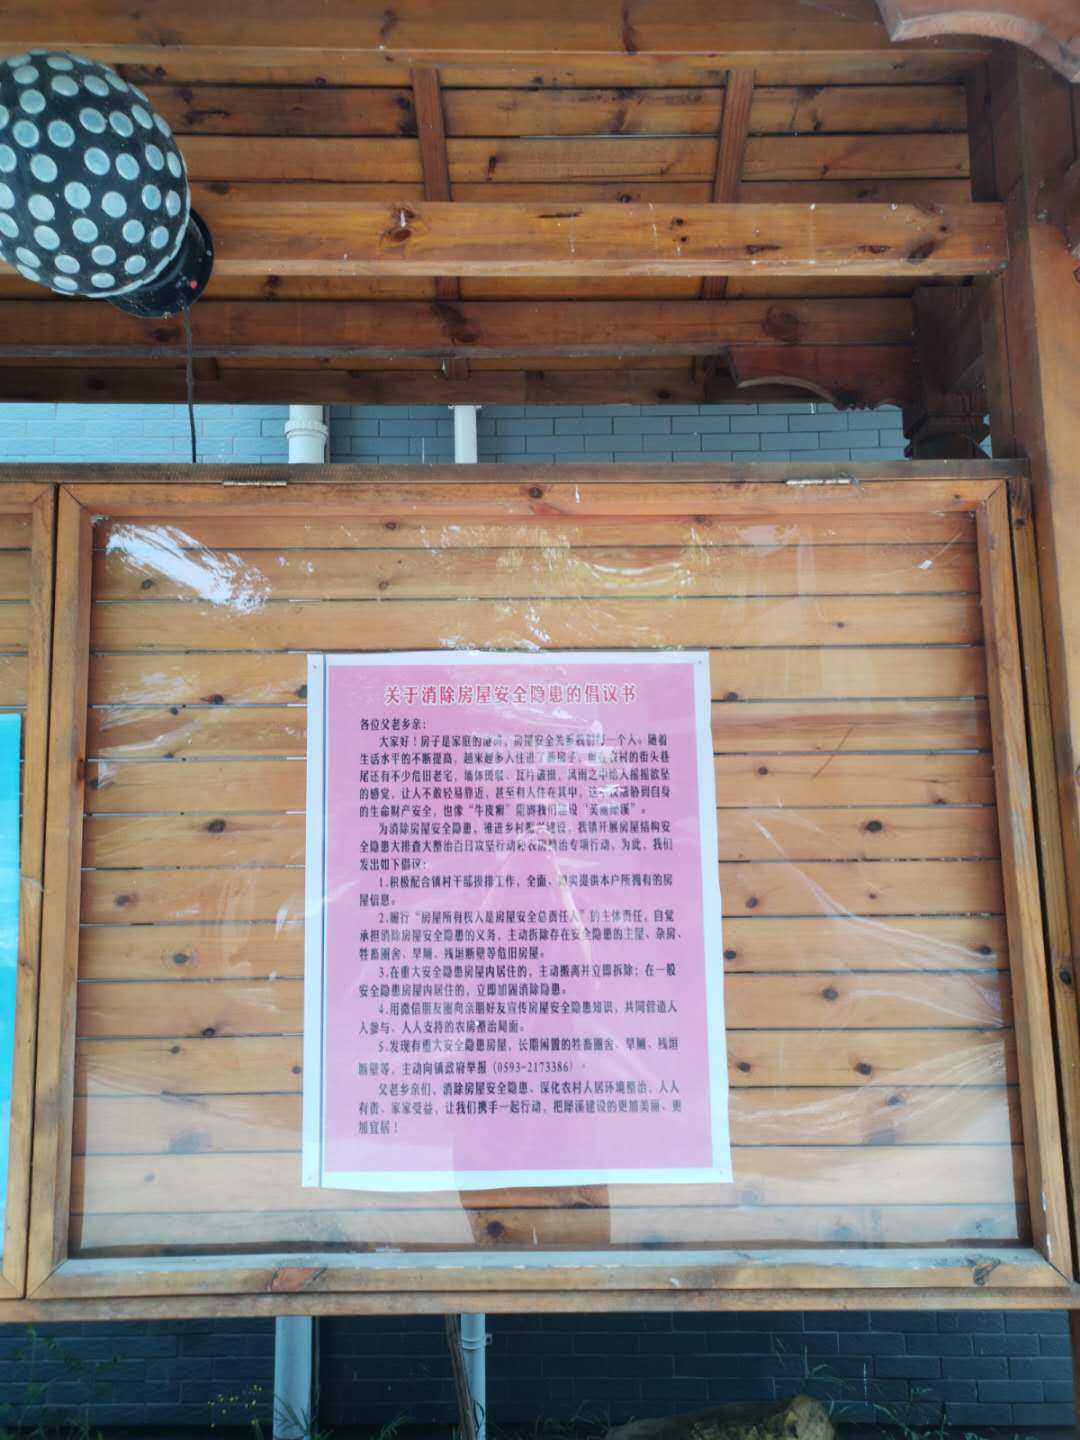 关于消除房屋安全隐患的倡议书
各位父老乡亲：
大家好！房子是家庭的港湾，房屋安全关系我们每一个人。随着
生活水平的不断提高，越来越多人住进了新房子，但在农村的街头巷
尾还有不少危旧老宅，墙体斑驳、瓦片破损，风雨之中给人摇摇欲坠
的感觉，让人不敢轻易靠近，甚至有人住在其中，这不仅威胁到自身
的生命财产安全，也像“牛皮癣”阻碍我们建设“美丽霍溪”。
为消除房屋安全隐患，推进乡村振兴建设，我镇开展房屋结构安
全隐患大排查大整治百日攻坚行动和农房整治专项行动，为此，我们
发出如下倡议：
1.积极配合镇村干部摸排工作，全面、如实提供本户所拥有的房
屋信息。
2.履行“房屋所有权人是房屋安全总责任人”的主体责任，自觉
承担消除房屋安全隐患的义务，主动拆除存在安全隐患的主屋、杂房、
牲畜圈舍、旱厕、残垣断壁等危旧房屋。
3.在重大安全隐患房屋内居住的，主动搬离并立即拆除；在一般
安全隐患房屋内居住的，立即加固消除隐患。
4.用微信朋友圈向亲朋好友宣传房屋安全隐患知识，共同营造人
人参与、人人支持的农房整治局面。
5.发现有重大安全隐患房屋，长期闲置的牲畜圈舍、旱厕、残垣
断壁等，主动向镇政府举报（0593-2173386）。
父老乡亲们，消除房屋安全隐患、深化农村人居环境整治，人人
有责、家家受益，让我们携手一起行动，把霍溪建设的更加美丽、更
加宜居！